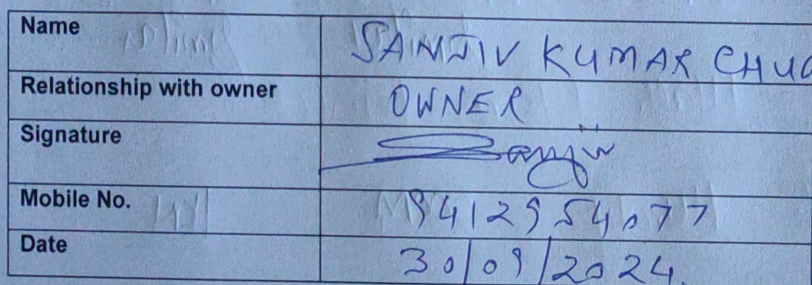 Name SANJIV KUMAR CHUG
Relationship with owner OWNER
Signature Sanjiv
Mobile No. 9412954077
Date 30/09/2024